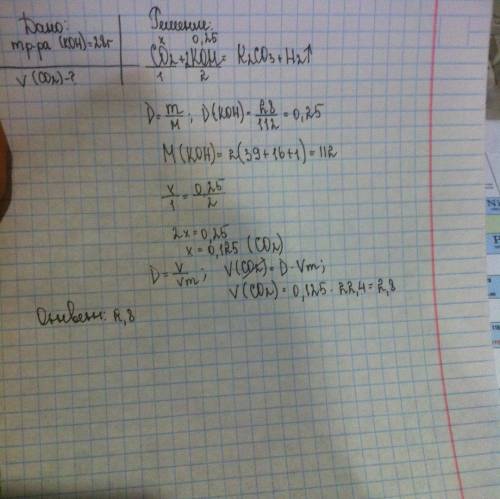 Дано:
mр-ра (KOH)=28г
V (CO2)-?
Решение:
x 0,25
CO2+2KOH= K2CO3+H2↑
1 2
D=m/M; D(KOH)=28/112=0,25
M(KOH)=2(39+16+1)=112
x/1=0,25/2
2x=0,25
x=0,125 (CO2)
D=V/Vm; V(CO2)=D·Vm;
V(CO2)=0,125·22,4=2,8
Ответ: 2,8